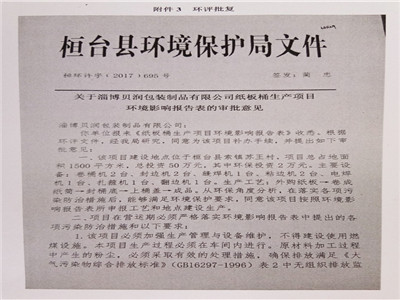 附件3 环评批复
桓台县环境保护局文件
桓环许字〔2017〕695号
签发：
关于淄博贝润包装制品有限公司纸板桶生产项目
环境影响报告表的审批意见
淄博贝润包装制品有限公司：
你单位报来《纸板桶生产项目环境影响报告表》收悉。根据
环评文件，经我局研究，同意该项目补办手续，并提出如下审
批意见：
一、该项目建设地点位于桓台县索镇苏王村，项目总占地面
积1500平方米，总投资50万元，其中环保投资2万元。主要设
备：卷桶机2台、封边机2台、缝焊机1台、粘边机2台、电焊
机1台、扎腰机1台、翻边机1台。生产工艺：外购纸板—卷成
纸筒—封桶底—上桶盖—成品。从环保角度分析，在落实各项污
染防治措施后，能够满足环境保护要求，同意该项目按照环境影
响报告表所申报工艺和地点建设生产。
二、项目在营运期必须严格落实环境影响报告表中提出的各
项污染防治措施和以下要求：
1、该项目必须加强生产管理与设备维护，不得建设使用燃
煤设施。本项目生产过程必须在车间内进行。原材料加工过程
中产生的粉尘，必须采取有效的处理措施，确保排放满足《大
气污染物综合排放标准》（GB16297-1996）表2中无组织排放监